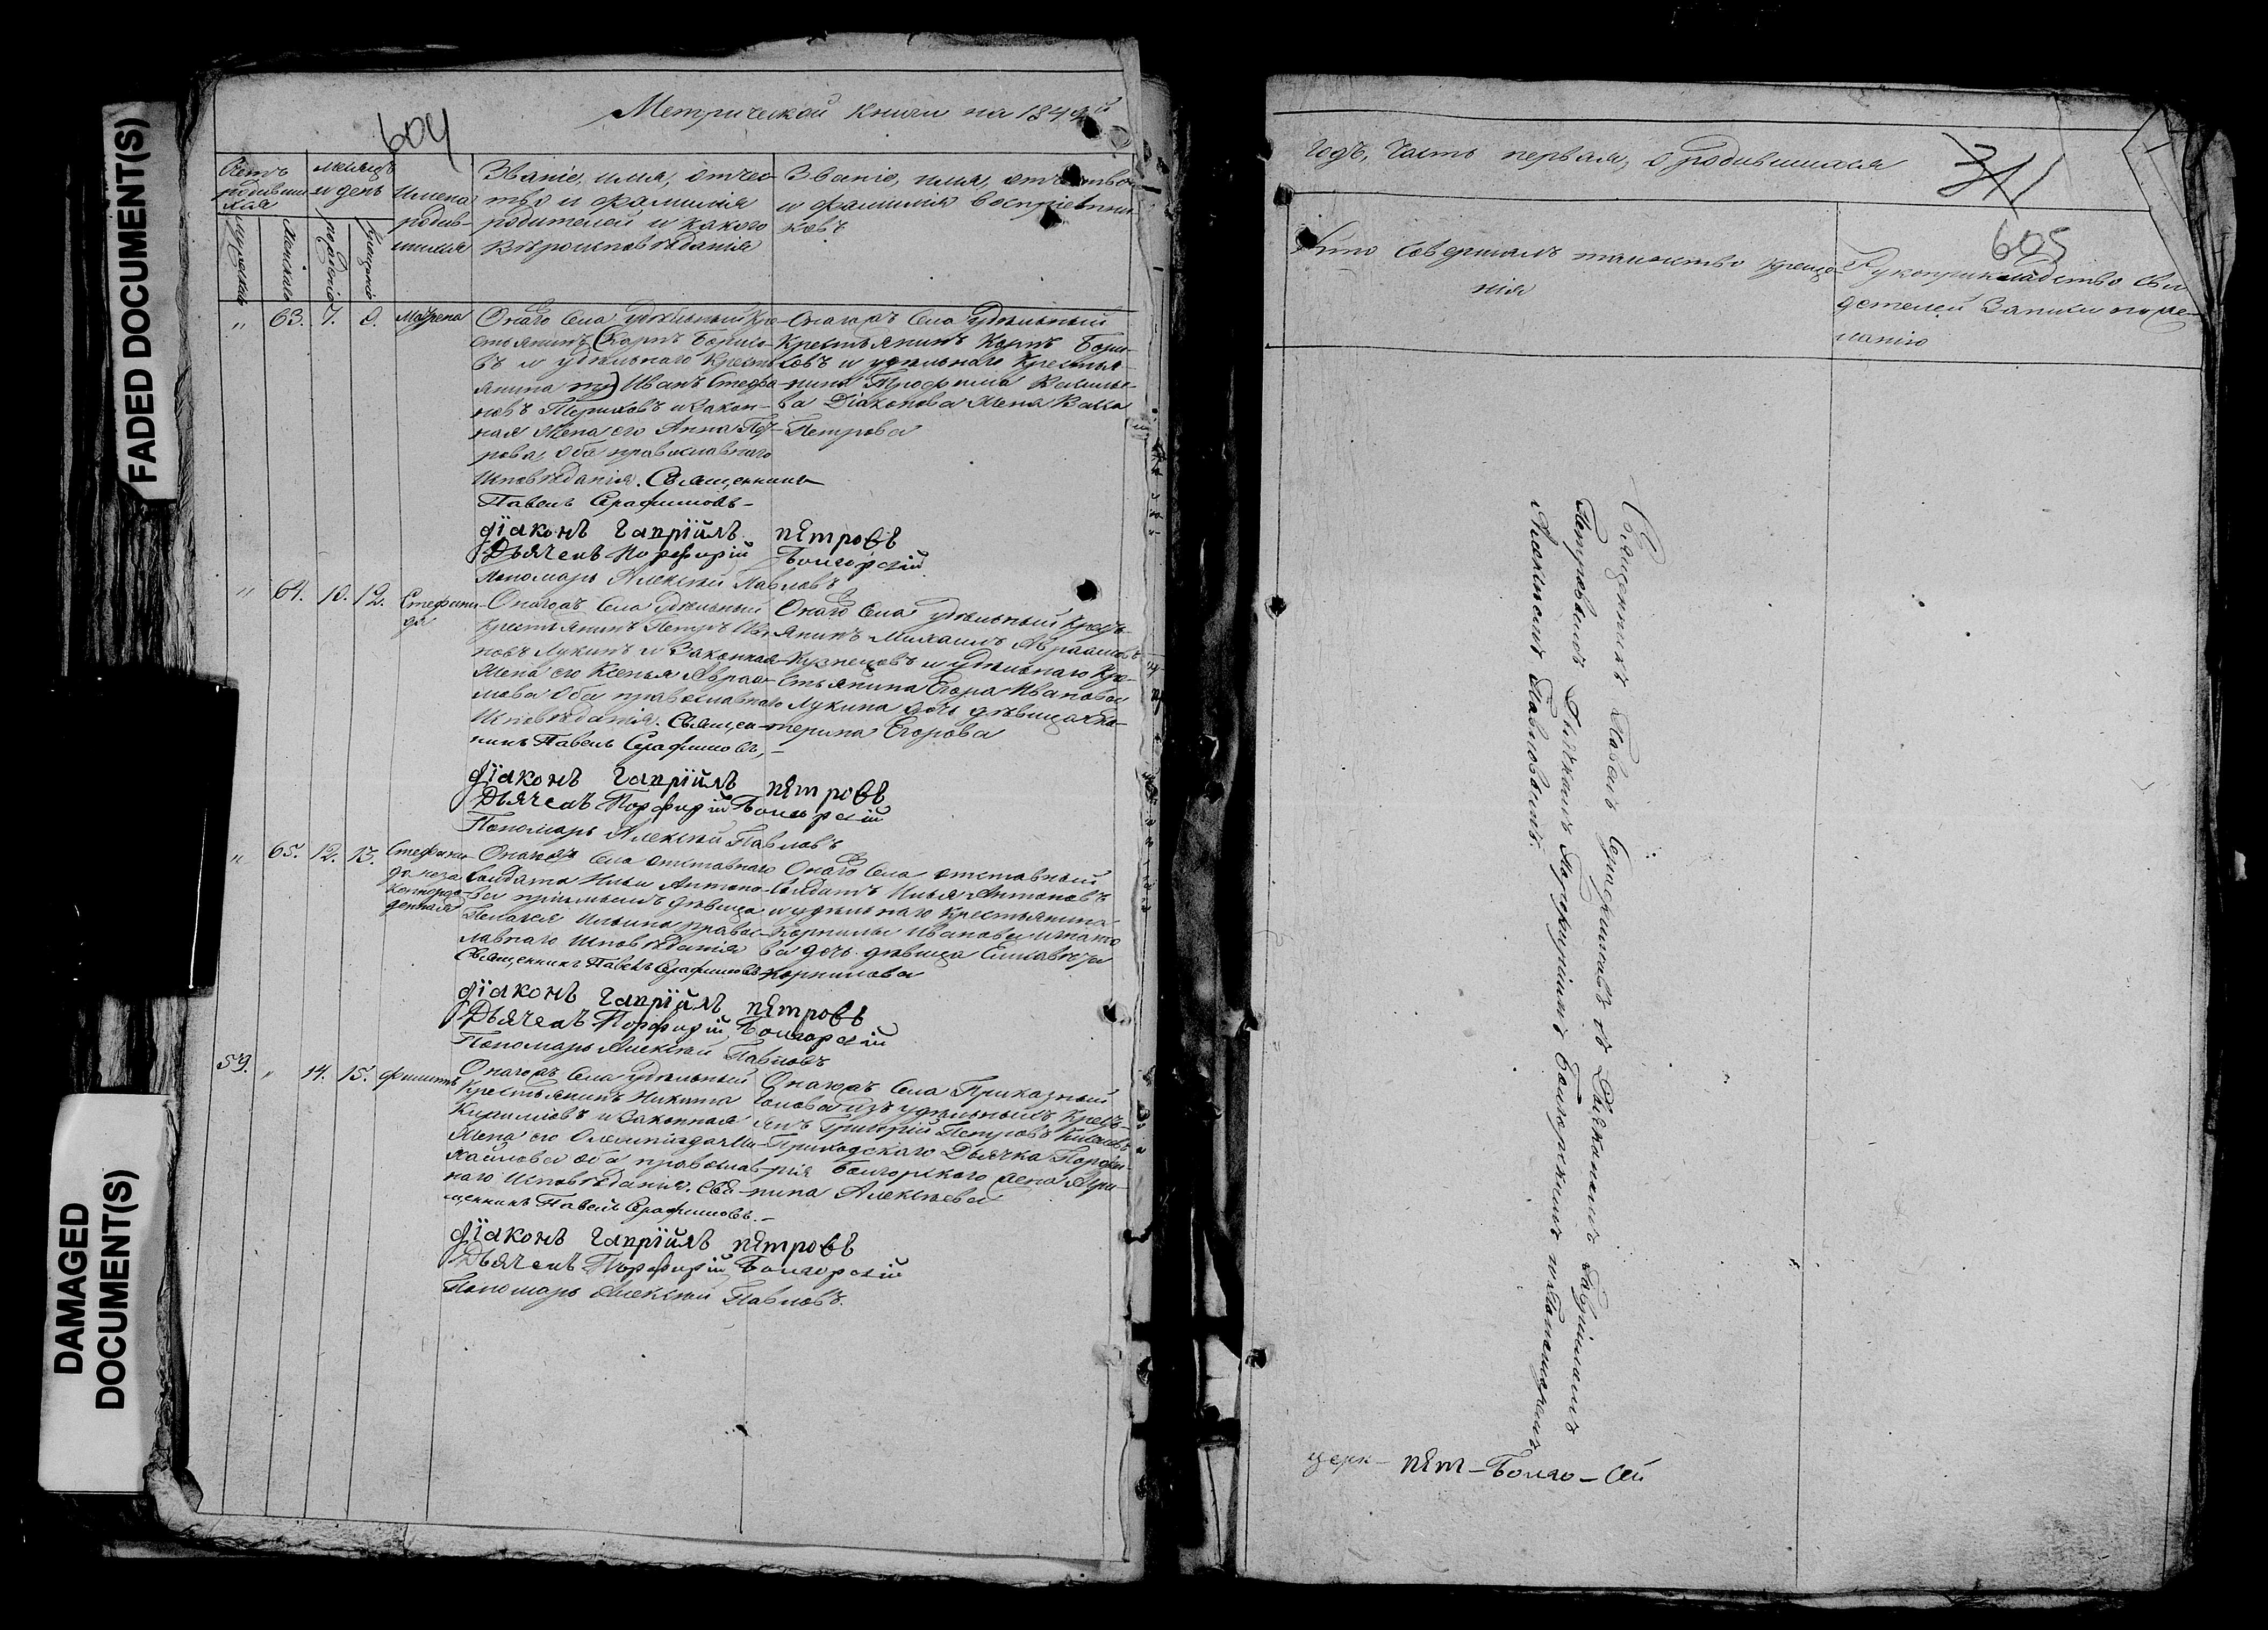 FADED DOCUMENT(S)
DAMAGED
DOCUMENT(S)
604
Метрической книги на 1844й
Счетъ
родивши
хся
Мужескаго
Женскаго
месяцъ
и день
рожденія
крещенія
Имена
родив-
шихся
Званіе, имя, отчес-
тво и фамилія
родителей и какого
вѣроисповѣданія
Званіе, имя, отчество
и фамилія воспріемни-
ковъ
„ 63. 7. 8. Матрена
Онаго села удѣльный кре-
стьянинъ (Карпъ Борисо-
въ и удѣльнаго кресть-
янина) Иванъ Стефа-
новъ и закон-
ная жена его Анна Пет-
рова, оба православнаго
исповѣданія. Священникъ
Павелъ Серафимовъ
Онагожъ села удѣльный
крестьянинъ Карпъ Бори-
совъ и удѣльнаго крестья-
нина Трофима Василье-
ва Діаконова жена Васса
Петрова
діаконъ гавріилъ пѣтровъ
Дьячекъ Порфирій Болгорскій
Пономарь Алексѣй Павловъ
„ 64. 10. 12. Стефани-
да
Онагожъ села удѣльный
крестьянинъ Петръ Ива-
новъ Лукинъ и законная
жена его Ксенья Авраа-
мова оба православнаго
исповѣданія. Священ-
никъ Павелъ Серафимовъ,
Онаго села удѣльный крестъ-
янинъ Михаилъ Авраамовъ
Кузнецовъ и удѣльнаго кре-
стьянина Егора Иванова
Лукина дочь дѣвица Ека-
терина Егорова
діаконъ гавріилъ пѣтровъ
Дьячекъ Порфирій Болгорскій
Пономарь Алексѣй Павловъ
„ 65. 12. 13. Стефани-
да неза
коннорож-
денная
Онагожъ села отставнаго
солдата Ильи Антоно-
ва пріемышъ дѣвица
Пелагея Ильина правос-
лавнаго исповѣданія
Священникъ Павелъ Серафимовъ
Онаго села отставный
солдатъ Илья Антоновъ
и удѣльнаго крестьянина
Корнилы Иванова Игнато
ва дочь дѣвица Елисавета
Корнилова
діаконъ гавріилъ пѣтровъ
Дьячекъ Порфирій Болгорскій
Пономарь Алексѣй Павловъ
59. „ 14. 15. Филиппъ
Онагожъ села удѣльный
крестьянинъ Никита
Кириловъ и законная
жена его Олимпіада Ми-
хайлова оба православ-
наго исповѣданія. Свя-
щенникъ Павелъ Серафимовъ.
Онагожъ села Приказный
голова изъ удѣльныхъ кресть-
янъ Григорій Петровъ
Приходскаго Дьячка Порфи-
рія Болгорскаго жена Агри-
пина Алексѣева
діаконъ гавріилъ пѣтровъ
Дьячекъ Порфирій Болгорскій
Пономарь Алексѣй Павловъ.
годъ, часть первая, о родившихся
31
605
Кто совершалъ таинство креще-
нія
Рукоприкладство сви-
детелей записи по же-
ланію
Священникъ Павелъ Серафимовъ съ Діакономъ Гавріиломъ
Петровымъ Дьячкомъ Порфиріемъ Болгорскимъ и Пономаремъ
Алексѣемъ Павловымъ.
церк- пѣт-Болго-сей